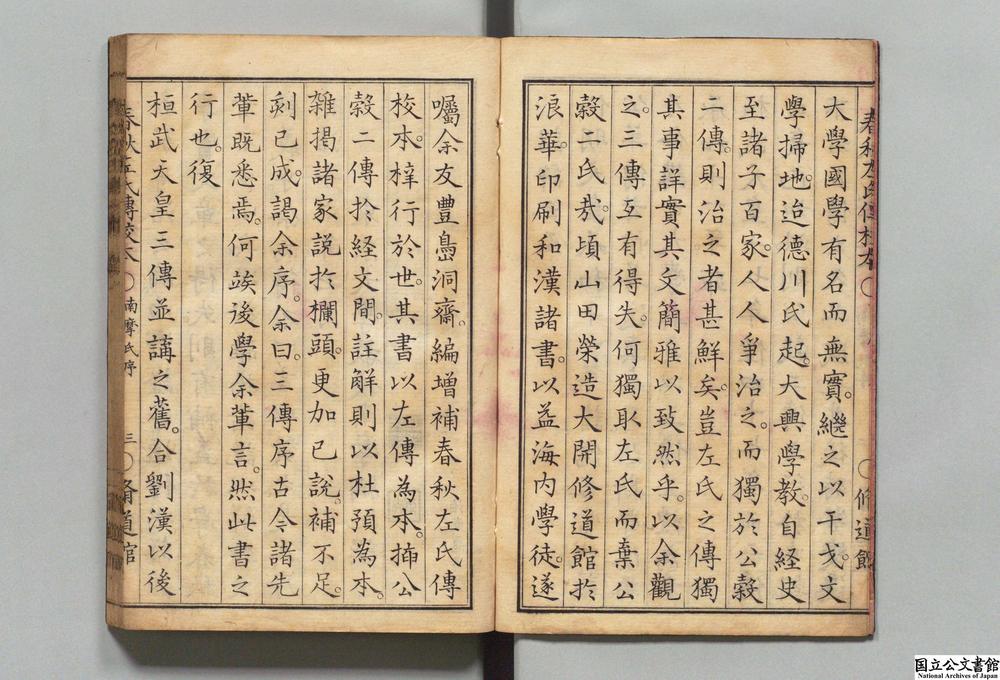 春秋左氏傳校本 ○ 修道館
大學國學有名而無實。繼之以干戈。文
學掃地。迨德川氏起。大興學教。自經史
至諸子百家。人人爭治之。而獨於公穀
二傳。則治之者甚鮮矣。豈左氏之傳獨
其事詳實其文簡雅以致然乎。以余觀
之。三傳互有得失。何獨取左氏而棄公
穀二氏哉。頃山田榮造大開修道館於
浪華。印刷和漢諸書。以益海內學徒。遂
囑余友豊嶌洞齋。編增補春秋左氏傳
校本。梓行於世。其書以左傳為本。插公
穀二傳於経文間。註解則以杜預為本。
雜揭諸家説於欄頭。更加已說。補不足。
刻已成。謁余序。余曰。三傳序古今諸先
輩既悉焉。何竢後學余輩言。然此書之
行也。復
桓武天皇三傳並講之舊。合劉漢以後
春秋左氏傳校本 ○ 南摩氏序 三 ○ 脩道館
国立公文書館
National Archives of Japan